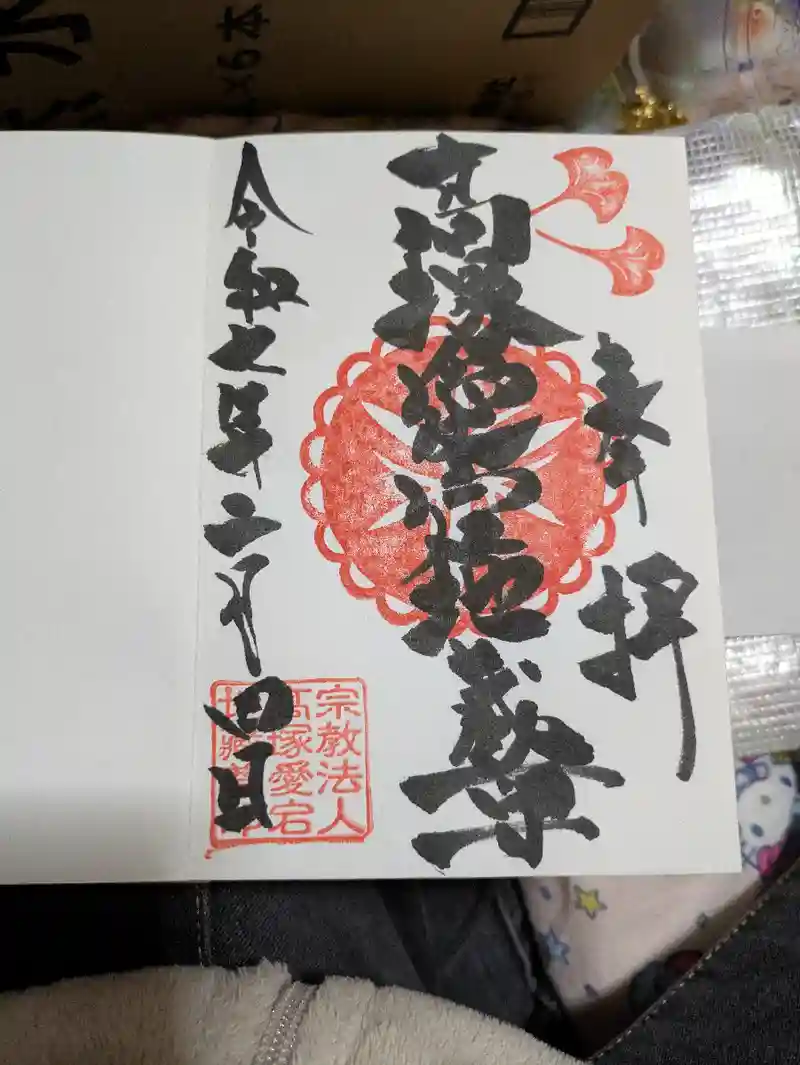 奉拝
高塚愛宕地蔵尊
令和七年二月四日
宗教法人
高塚愛宕
地蔵尊
水
×6本